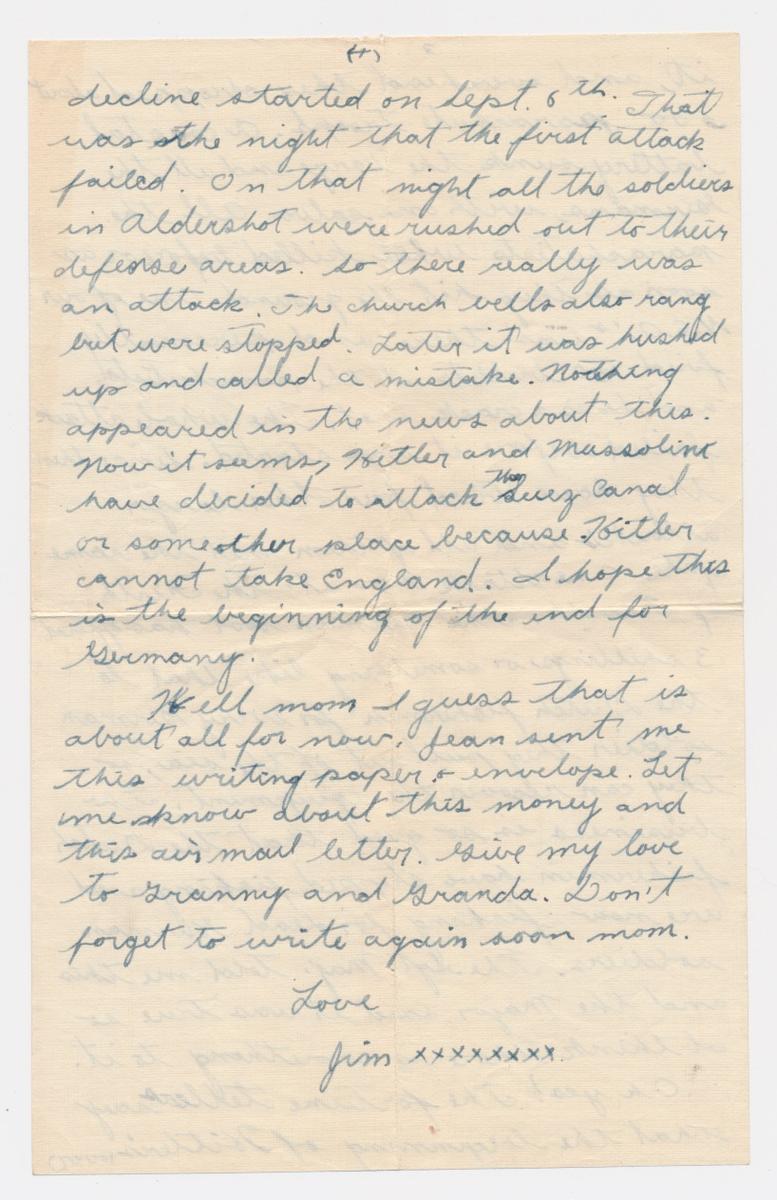 (4)
decline started on Sept. 6th. That
was the night that the first attack
failed. On that night all the soldiers
in Aldershot were rushed out to their
defense areas. So there really was
an attack. The church bells also rang
but were stopped. Later it was hushed
up and called a mistake. Nothing
appeared in the news about this.
Now it seems, Hitler and Mussolini
have decided to attack The Suez Canal
or someother place because Hitler
cannot take England. I hope this
is the beginning of the end for
Germany.
Well mom I guess that is
about all for now. Jean sent me
this writing paper & envelope. Let
me know about this money and
this air mail letter. Give my love
to Granny and Granda. Don't
forget to write again soon mom.
Love
Jim xxxxxxxx